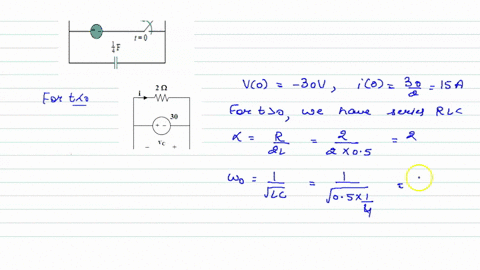 t = 0
1/4 F
For t<0
i 2 Ω
30
+ -
v_C
V(0) = -30V, i(0) = 30/2 = 15 A
For t>0, we have series RLC
α = R/2L = 2/(2×0.5) = 2
ω0 = 1/√LC = 1/√(0.5×1/4) =